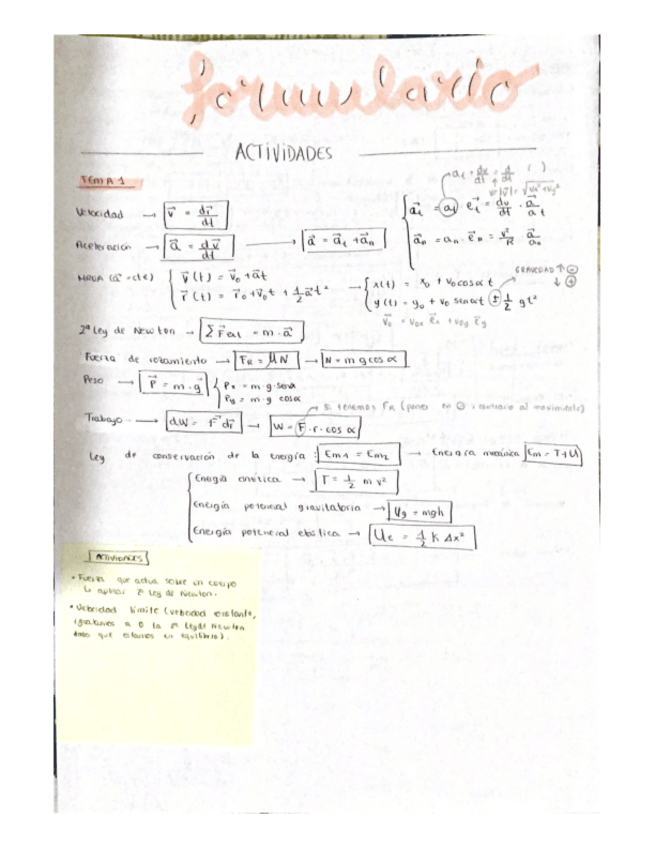 formulario
ACTIVIDADES
TEMA 1
a_t = dv/dt = d/dt ( )
v = |v⃗| = √(vx² + vy²)
Velocidad → v⃗ = dr⃗/dt
a⃗_t = a_t e⃗_t = dv/dt · a⃗/a t
Aceleración → a⃗ = dv⃗/dt → a⃗ = a⃗_t + a⃗_n
a⃗_n = a_n · e⃗_n = v²/R a⃗/a_n
GRAVEDAD ↑ ⊖ ↓ ⊕
MRUA (a⃗ = cte) v⃗(t) = v⃗_0 + a⃗t → x(t) = x_0 + v_0 cos α t
r⃗(t) = r⃗_0 + v⃗_0 t + 1/2 a⃗t² y(t) = y_0 + v_0 sen α t ± 1/2 g t²
v⃗_0 = v_0x e⃗_x + v_0y e⃗_y
2ª Ley de Newton → Σ F⃗ext = m · a⃗
Fuerza de rozamiento → F_R = μ N → N = m g cos α
Peso → P⃗ = m · g⃗ Px = m · g · sen α
Py = m · g cos α
Si tenemos F_R (poner en ⊖, contrario al movimiento)
Trabajo → dW = F⃗ dr⃗ → W = F · r · cos α
Ley de conservación de la energía : Em1 = Em2 → Energía mecánica Em = T + U
Energía cinética → T = 1/2 m v²
Energía potencial gravitatoria → Ug = mgh
Energía potencial elástica → Ue = 1/2 K Δx²
ACTIVIDADES
• Fuerza que actua sobre un cuerpo
↳ aplicar 2ª Ley de Newton.
• Velocidad límite (velocidad constante,
igualamos a 0 la 2ª Ley de Newton
dado que estamos en equilibrio).